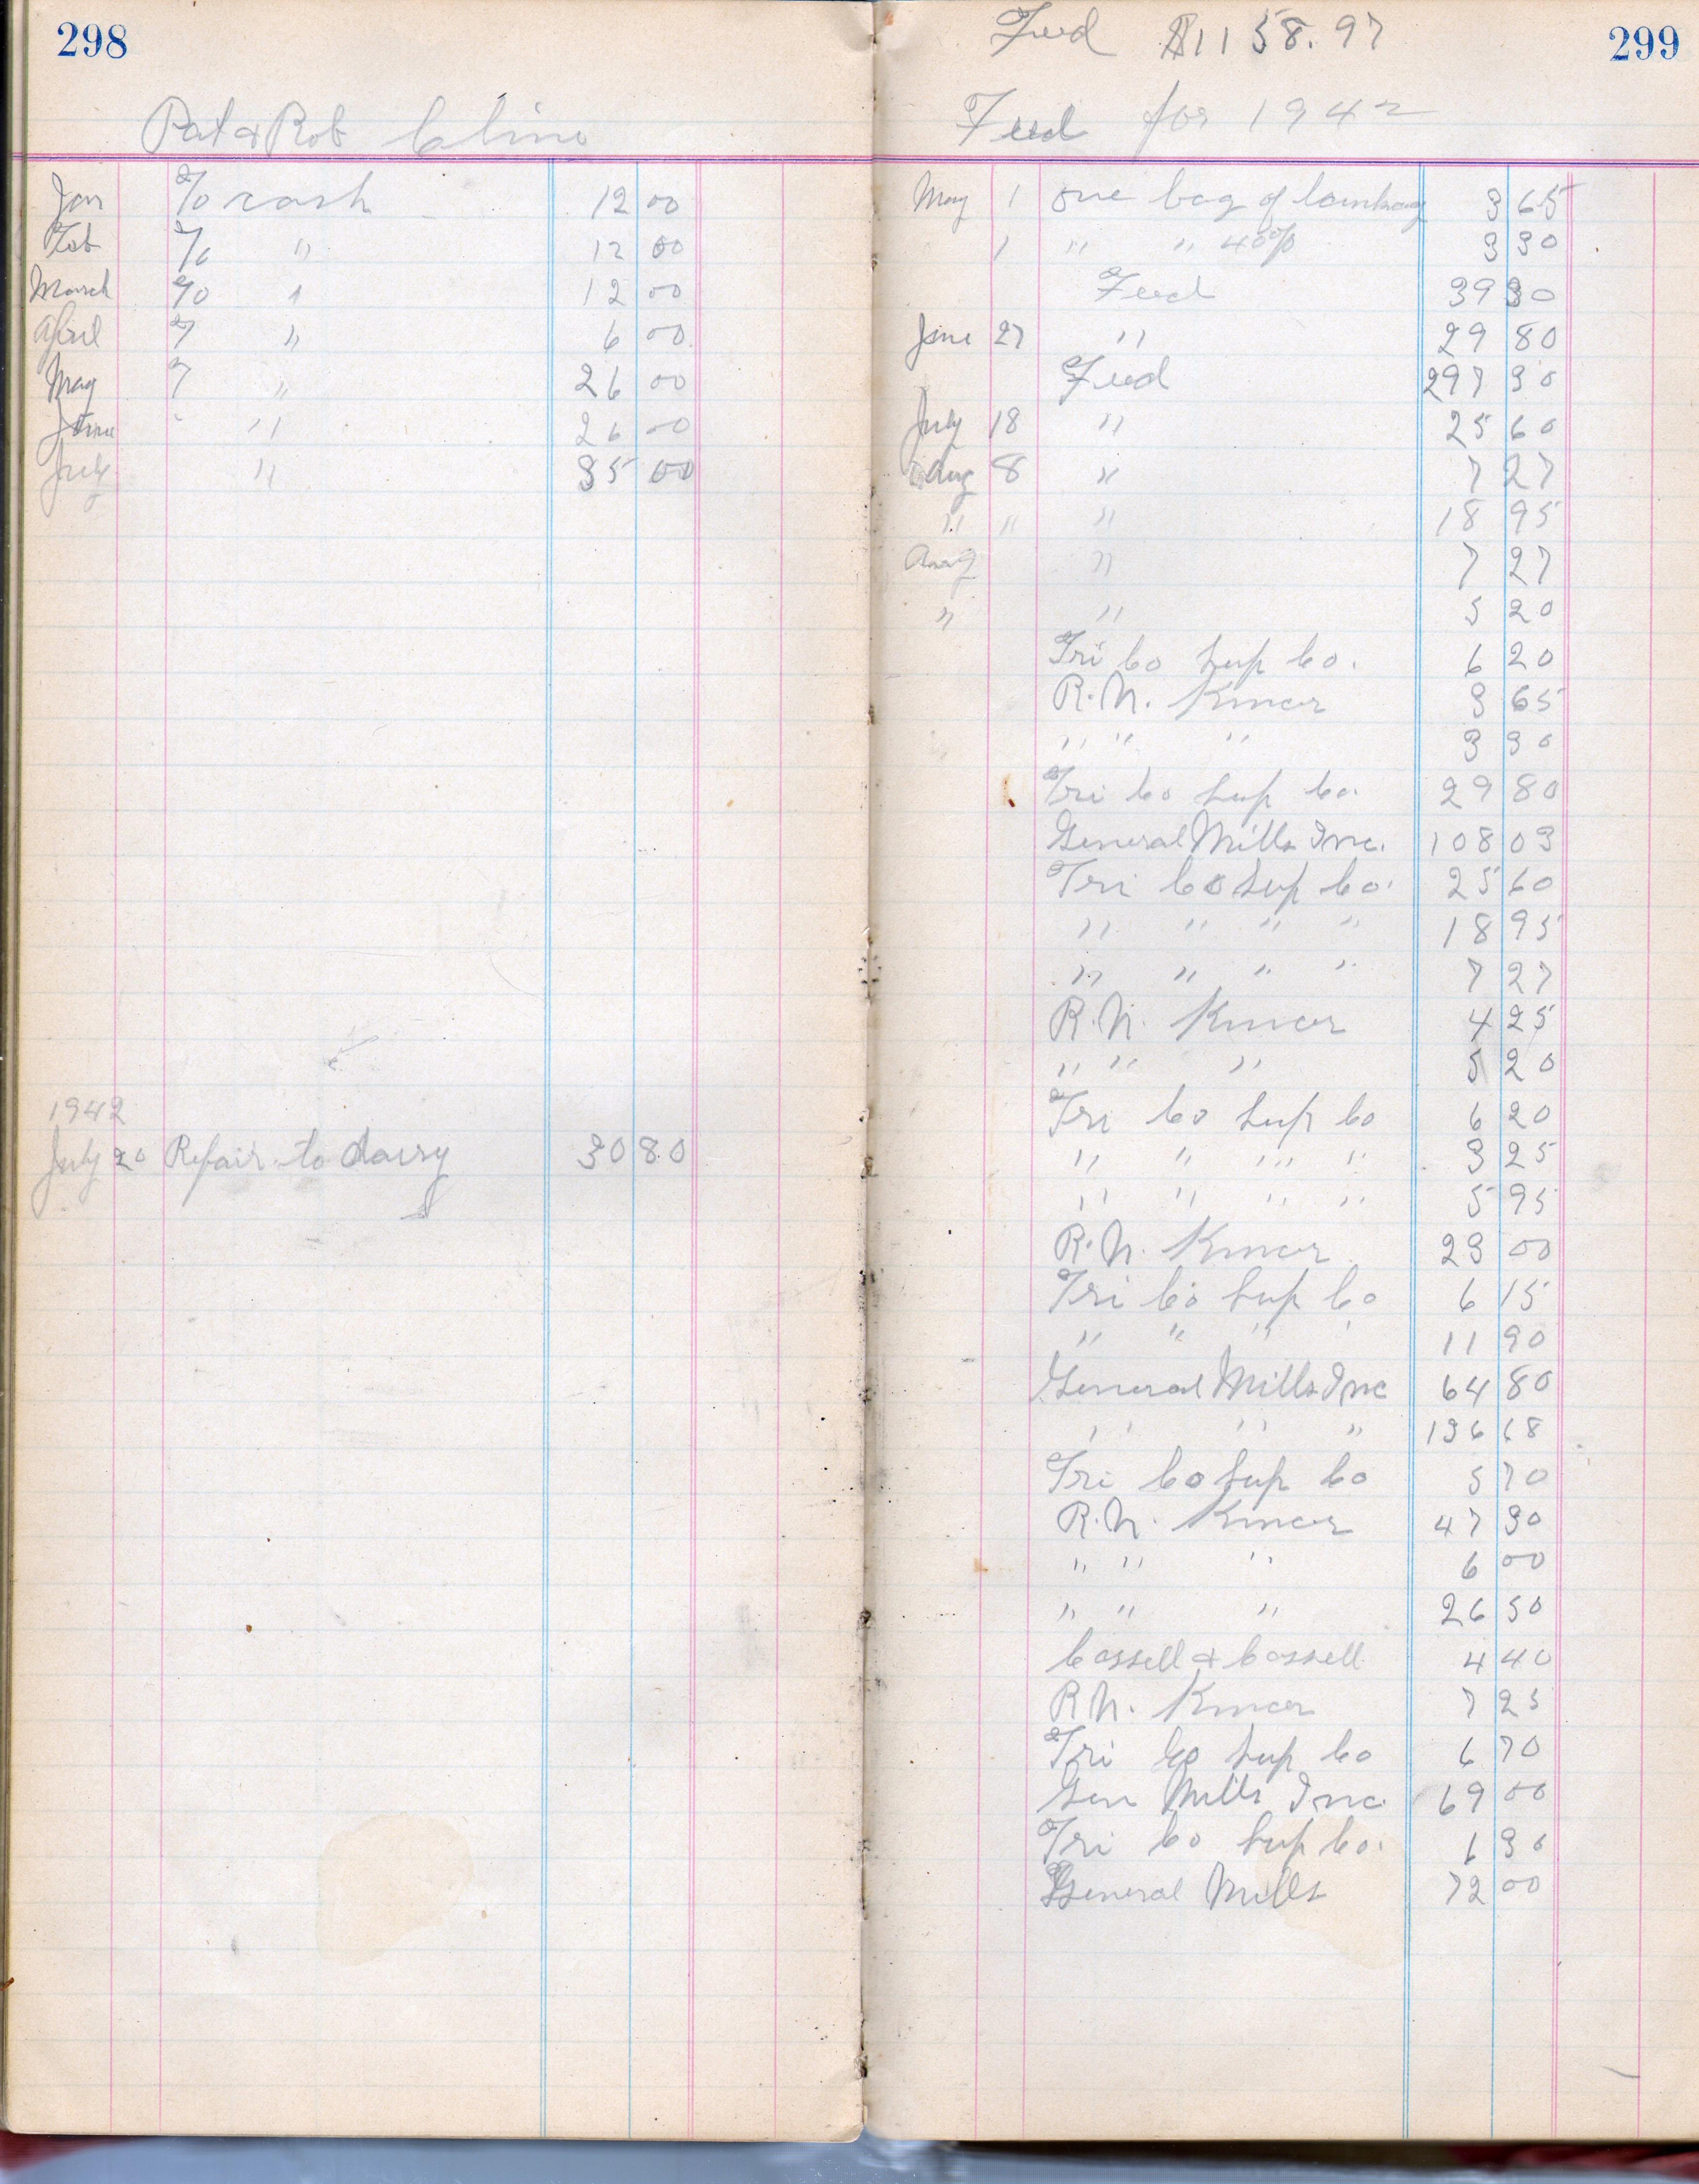 298
Pat & Rob Cline
Jan % cash 12 00
Feb % " 12 00
March % " 12 00
April " 6 00
May " 26 00
June " 26 00
July " 35 00
1942
July 20 Repair to dairy 30 80
299
Feed $1158.97
Feed for 1942
May 1 one bag of 3 65
1 " " 40% 3 30
Feed 39 30
June 27 " 29 80
Feed 297 30
July 18 " 25 60
Aug 8 " 7 27
" " " 18 95
Aug " 7 27
" " 5 20
Tri Co Sup Co. 6 20
R.N. Kincer 3 65
" " " 3 30
Tri Co Sup Co. 29 80
General Mills Inc. 108 03
Tri Co Sup Co. 25 60
" " " " 18 95
" " " " 7 27
R.N. Kincer 4 25
" " " 5 20
Tri Co Sup Co 6 20
" " " " 3 25
" " " " 5 95
R.N. Kincer 23 00
Tri Co Sup Co 6 15
" " " " 11 90
General Mills Inc 64 80
" " " 136 68
Tri Co Sup Co 5 70
R.N. Kincer 47 30
" " " 6 00
" " " 26 50
Cassell & Cassell 4 40
R N. Kincer 7 25
Tri Co Sup Co 6 70
Gen Mills Inc. 69 00
Tri Co Sup Co. 6 30
General Mills 72 00